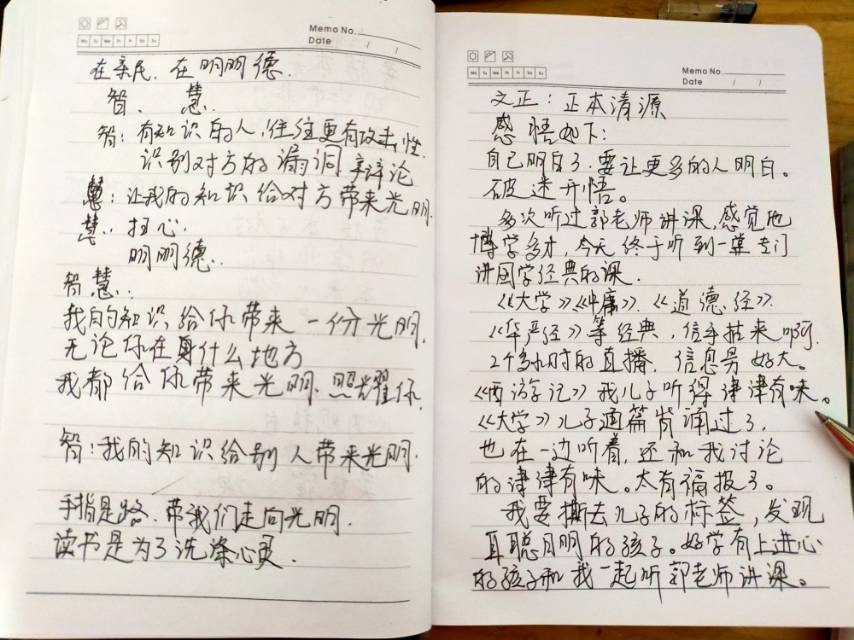 Memo No.
Date / /
Mo Tu We Th Fr Sa Su
在亲民.在明明德.
智、慧.
智:有知识的人,往往更有攻击性.
识别对方的漏洞 辩论
慧:让我的知识给对方带来光明.
慧.扫心.
明明德.
智慧.
我的知识给你带来一份光明.
无论你在身什么地方
我都给你带来光明.照耀你.
智:我的知识给别人带来光明.
手指是路.带我们走向光明.
读书是为了洗涤心灵.
Memo No.
Date / /
Mo Tu We Th Fr Sa Su
文正:正本清源
感悟如下:
自己明白了.要让更多的人明白。
破迷开悟。
多次听过郭老师讲课,感觉他
博学多才,今天终于听到一堂专门
讲国学经典的课.
《大学》《中庸》.《道德经》.
《华严经》等经典,信手拈来啊.
2个多小时的直播.信息量好大。
《西游记》我儿子听得津津有味。
《大学》儿子通篇背诵过了.
也在一边听着,还和我讨论
的津津有味。太有福报了。
我要撕去儿子的标签,发现
耳聪目明的孩子。好学有上进心
的孩子和我一起听郭老师讲课。